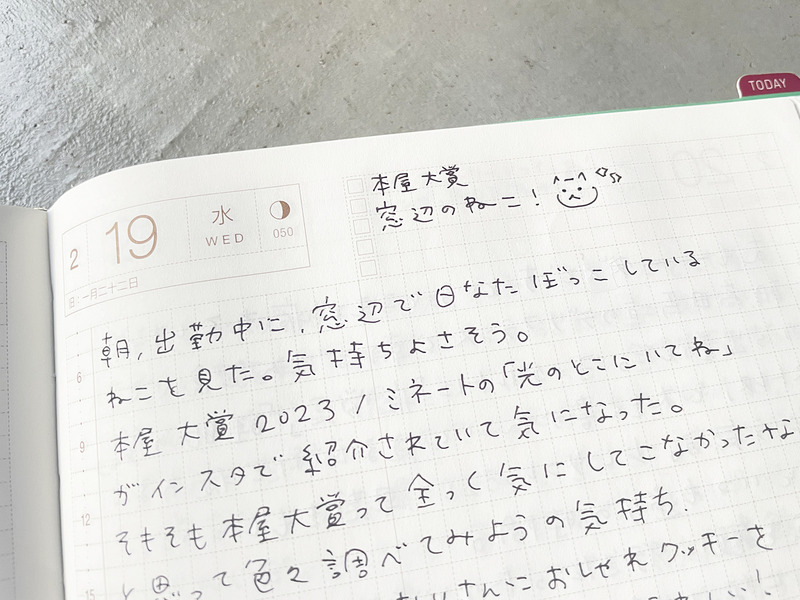 TODAY
2 19 水 WED 050
旧:一月二十二日
本屋大賞
窓辺のねこ!
朝,出勤中に,窓辺で日なたぼっこしている
ねこを見た。気持ちよさそう。
本屋大賞2023ノミネートの「光のとこにいてね」
がインスタで紹介されていて気になった。
そもそも本屋大賞って全く気にしてこなかったな
と思って色々調べてみようの気持ち.
さんにおしゃれクッキーを
れしい!
6
9
12
15